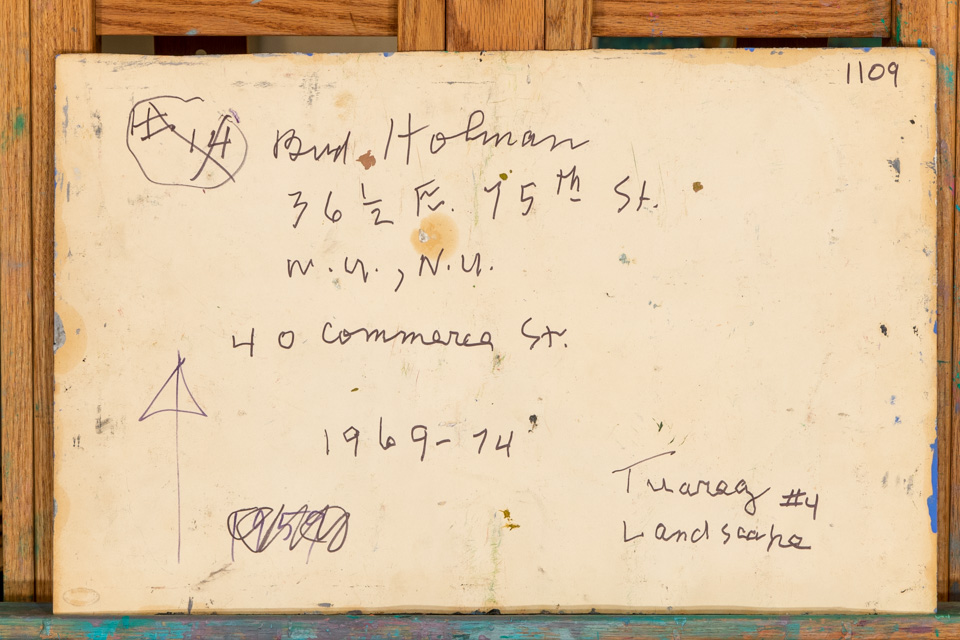 1109
#.14
Bud Holman
36 ½ E. 75th St.
N.Y., N.Y.
40 Commerce St.
1969-74
Tuareg #4
Landscape